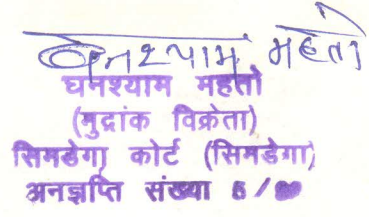 घनश्याम महतो
घनश्याम महतो
(मुद्रांक विक्रेता)
सिमडेगा कोर्ट (सिमडेगा)
अनज्ञप्ति संख्या